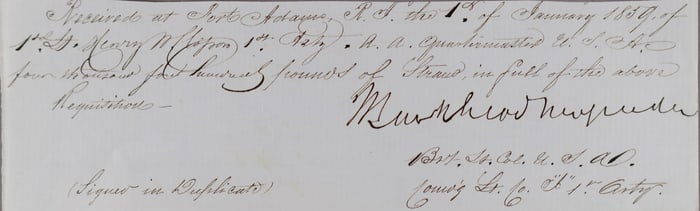 Received at Fort Adams, R. I. the 1st of January 1859, of
1st Lt. Henry W Closson 1st Arty. A. A. Quartermaster U. S. A.
four thousand four hundred pounds of Straw, in full of the above
Requisition —
J Bankhead Magruder
Bvt. Lt. Col. U. S. A.
Comd'g Lt. Co. "I" 1st Arty.
(Signed in Duplicate)